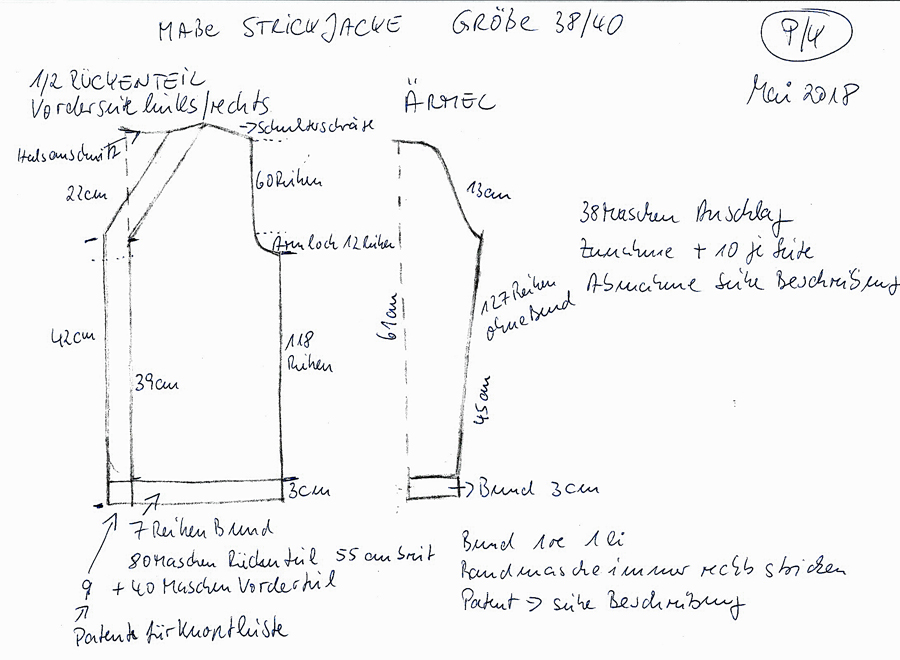 MAßE STRICKJACKE GRÖßE 38/40
P/4
Mai 2018
1/2 RÜCKENTEIL
Vorderseite links/rechts
ÄRMEL
→ Schulterschräge
Halsausschnitt
22cm
60 Reihen
13cm
Armloch 12 Reihen
38 Maschen Anschlag
Zunahme + 10 je Seite
Abnahme siehe Beschreibung
42cm
39cm
118
Reihen
61cm
127 Reihen
ohne Bund
45cm
3cm
→ Bund 3cm
7 Reihen Bund
80 Maschen Rückenteil 55cm breit
9 + 40 Maschen Vorderteil
Patent für Knopfleiste
Bund 1re 1li
Randmasche immer rechts stricken
Patent → siehe Beschreibung